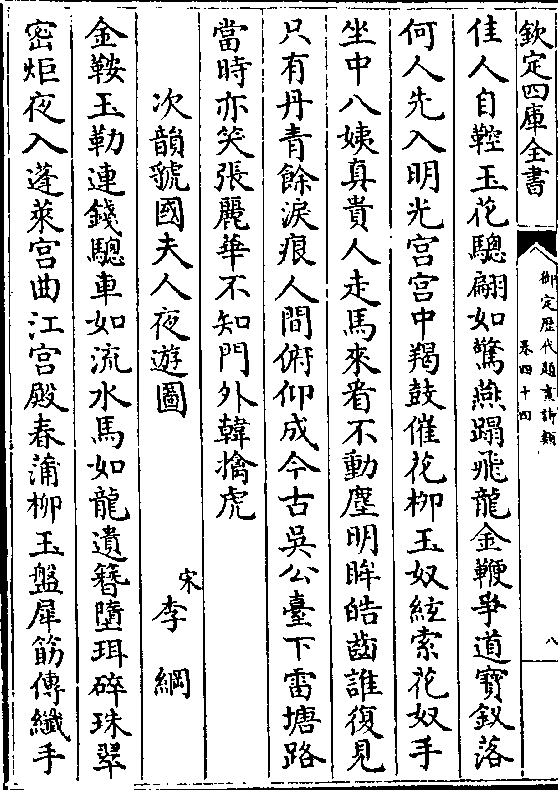 欽定四庫全書
御定歴代題畫詩類
卷四十四
八
佳人自鞚玉花驄翩如驚燕蹋飛龍金鞭爭道寶釵落
何人先入明光宫宫中羯鼓催花柳玉奴絃索花奴手
坐中八姨真貴人走馬來看不動塵明眸皓齒誰復見
只有丹青餘淚痕人間俯仰成今古吳公臺下雷塘路
當時亦笑張麗華不知門外韓擒虎
次韻虢國夫人夜遊圖
宋李綱
金鞍玉勒連錢驄車如流水馬如龍遺簪墮珥碎珠翠
密炬夜入蓬萊宫曲江宫殿春蒲柳玉盤犀筯傳纖手